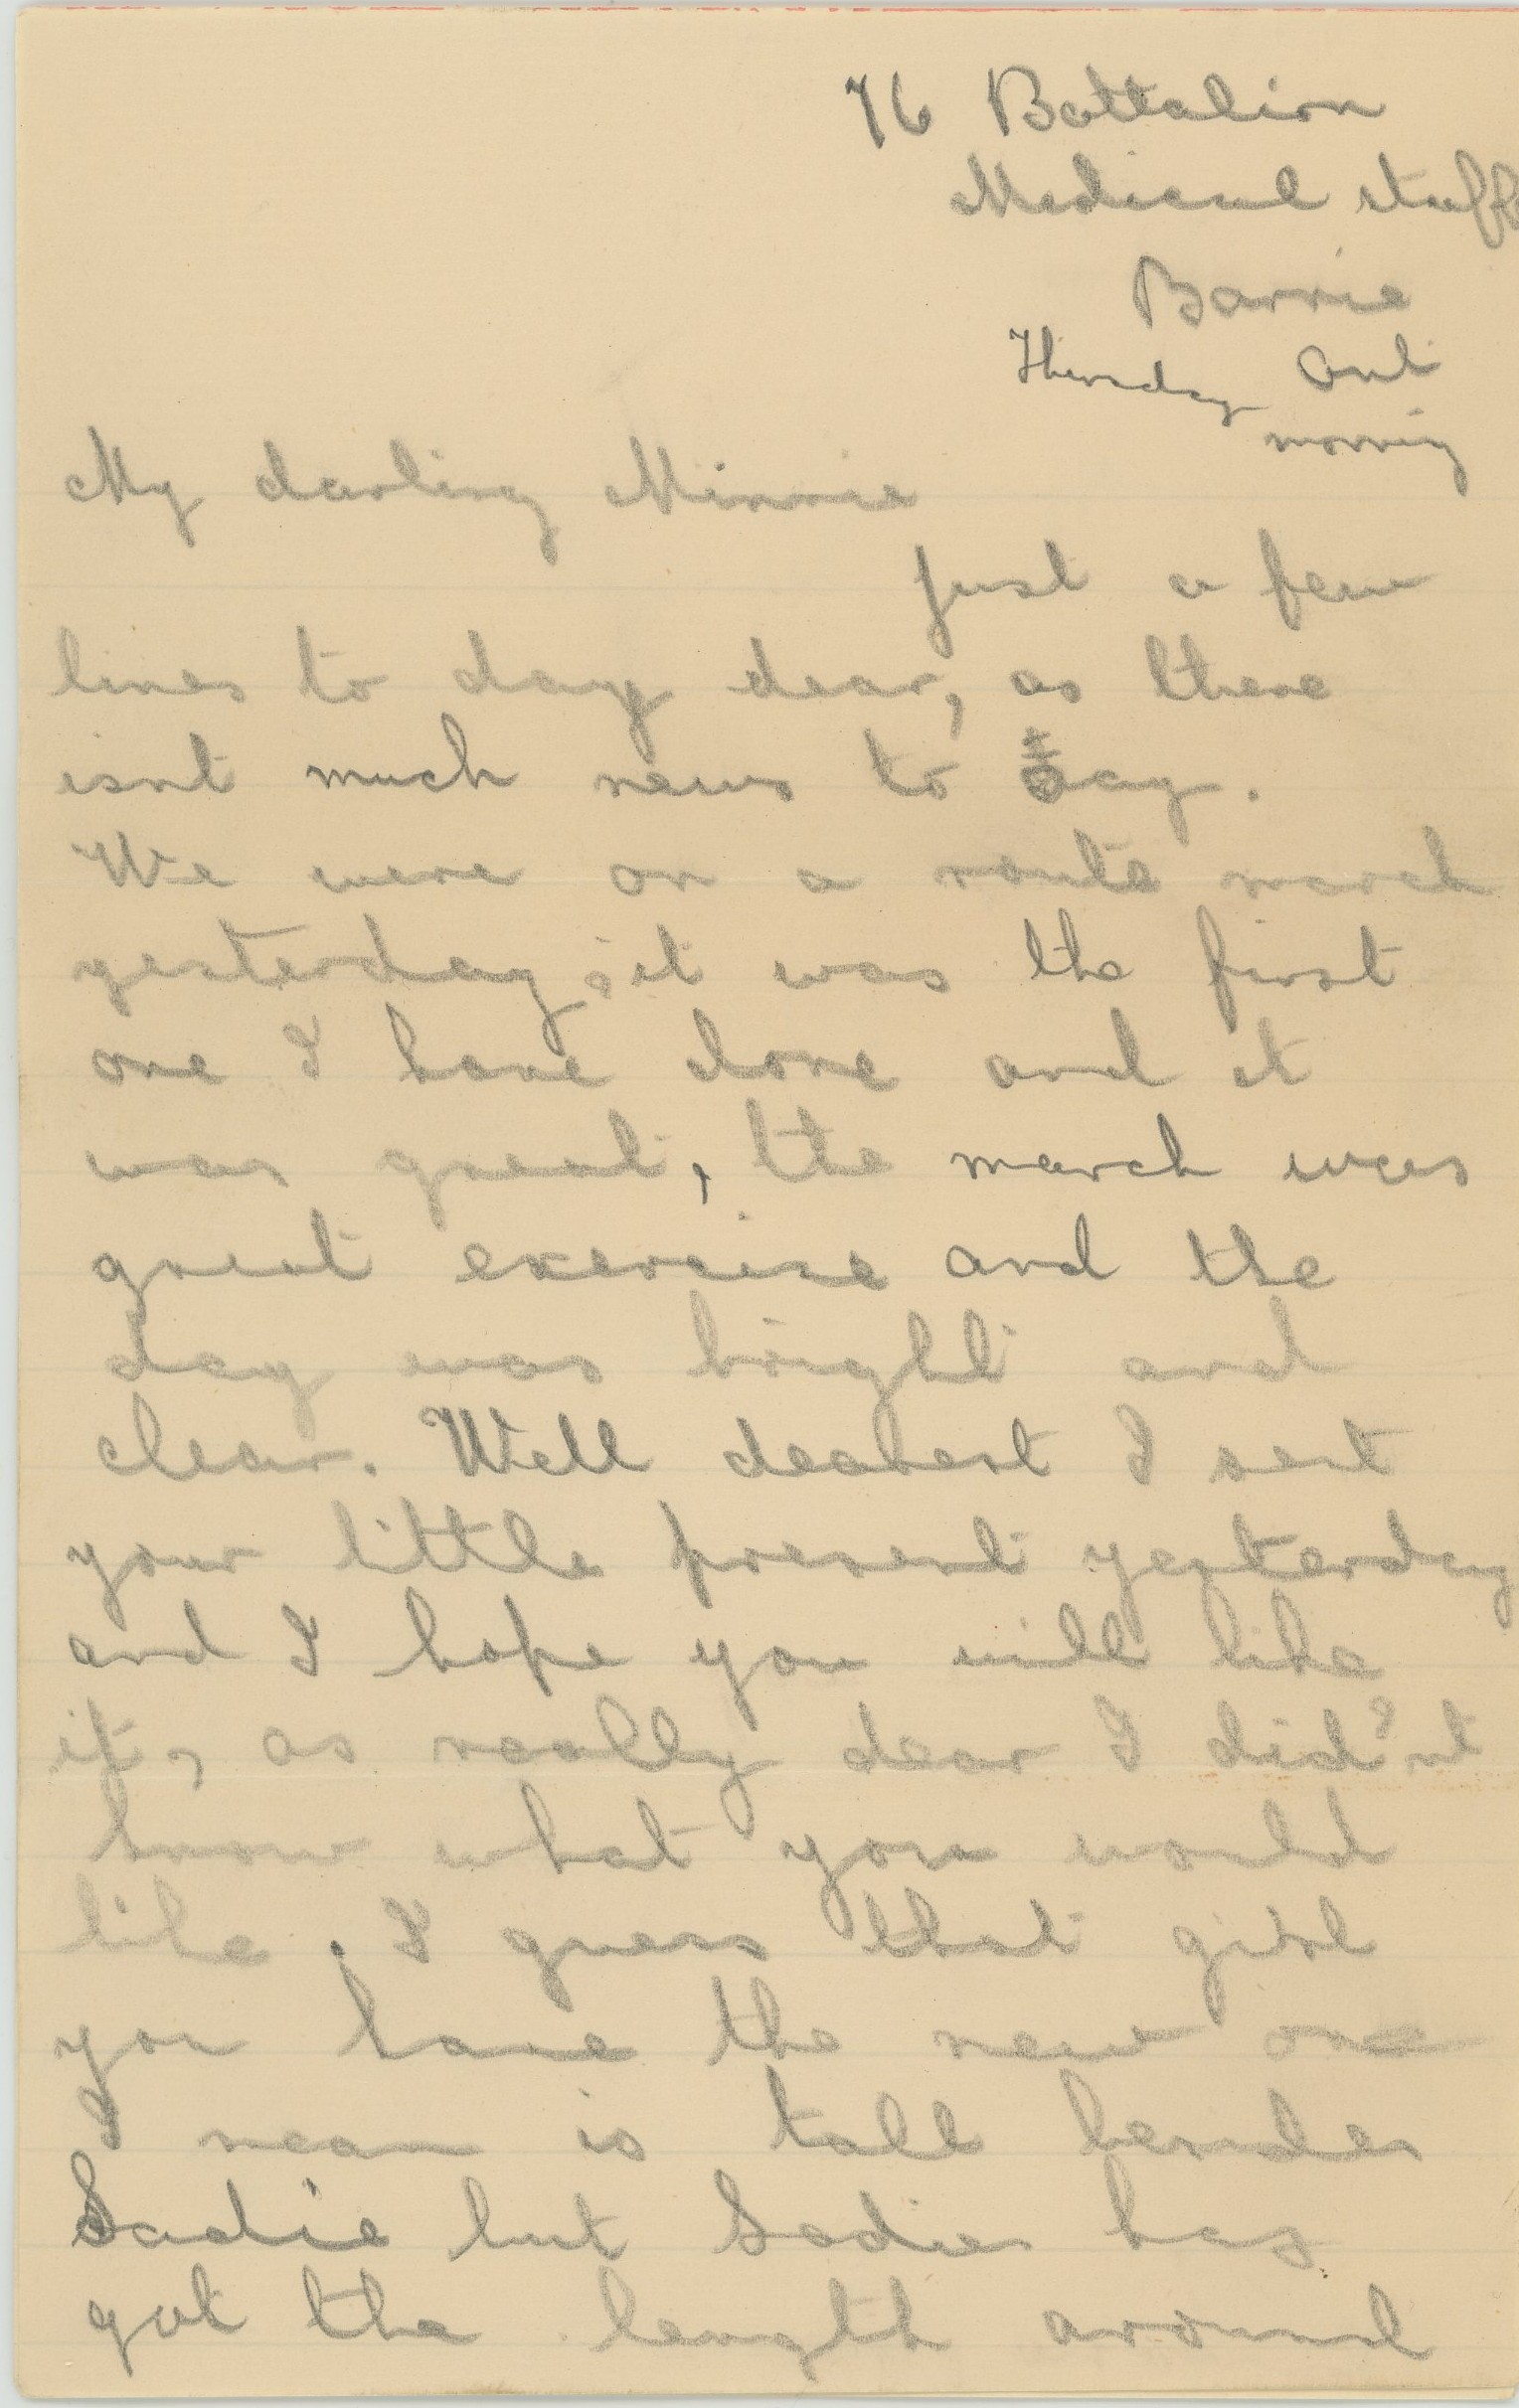 76 Battalion
Medical staff
Barrie
Thursday Ont
morning
My darling Minnie
just a few
lines to day dear, as there
isnt much news to say.
We were on a route march
yesterday, it was the first
one I have done and it
was great, the march was
great exercise and the
day was bright and
clear. Well dearest I sent
your little present yesterday
and I hope you will like
it, as really dear I did'nt
know what you would
like. I guess that girl
you have the new one
I mean is tall besides
Sadie but Sadies has
got the length around